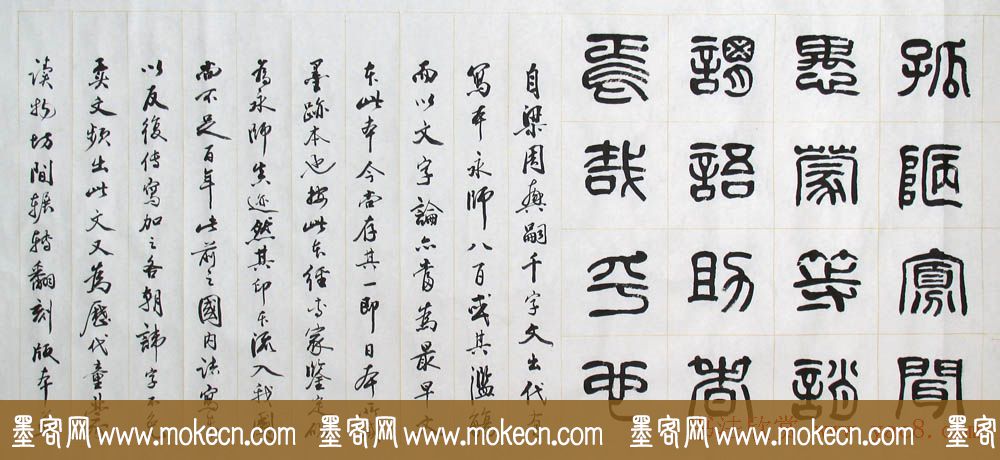 孤陋寡聞
愚蒙等誚
謂語助者
焉哉乎也
自梁周興嗣千字文出代有
寫本永師八百或其濫觴
而以文字論亦當為最早
本此本今尚存其一即日本
墨跡本也按此本經專家鑒定確
為永師真迹然其印本流入我國
尚不足百年此前之國內讀寫
以反復傳寫加之各朝諱字不免
文頻出此文又為歷代童蒙
讀物坊間輾轉翻刻版本
墨客网 www.mokecn.com 墨客网 www.mokecn.com 墨客网 www.mokecn.com 墨客网 www.mokecn.com